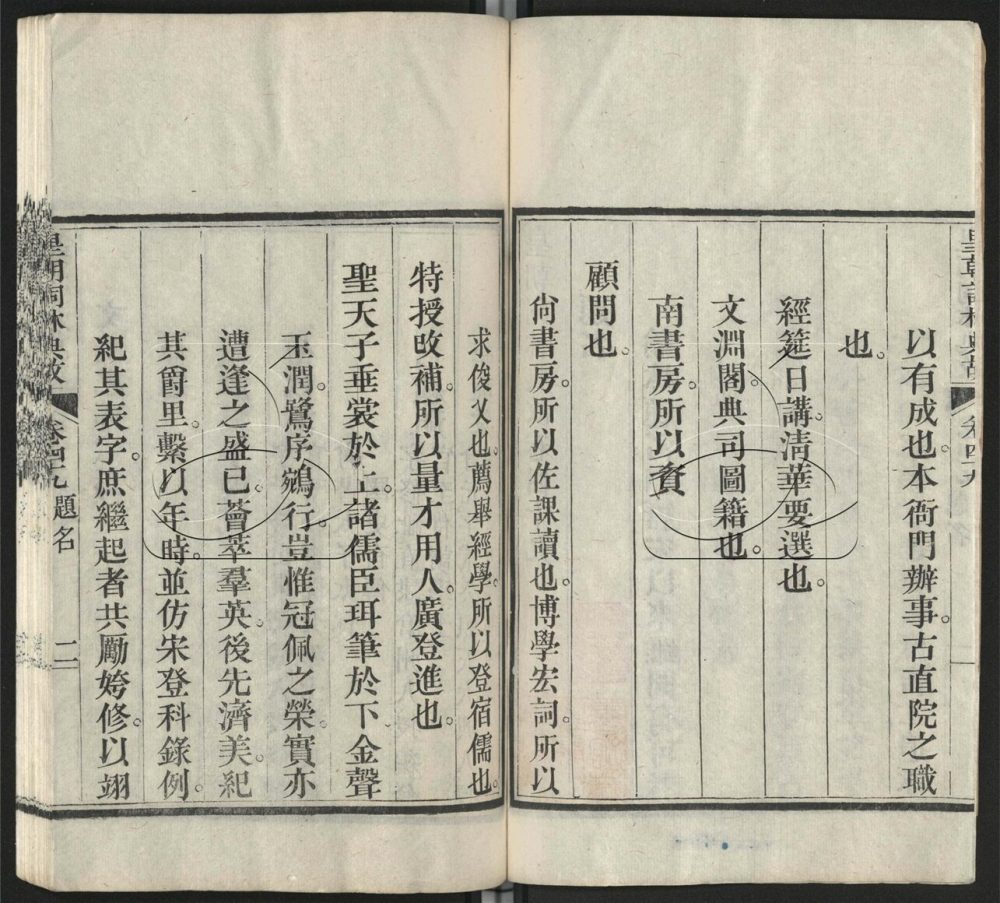 以有成也。本衙門辦事。古直院之職
也。
經筵日講。清華要選也。
文淵閣典司圖籍也。
南書房。所以資
顧問也。
尚書房。所以佐課讀也。博學宏詞。所以
求俊乂也。薦舉經學。所以登宿儒也。
特授改補。所以量才用人。廣登進也。
聖天子垂裳於上。諸儒臣珥筆於下。金聲
玉潤。鷺序鵷行。豈惟冠佩之榮。實亦
遭逢之盛已。薈萃羣英。後先濟美。紀
其爵里。繫以年時。並仿宋登科錄例。
紀其表字。庶繼起者共勵姱修。以翊
皇朝詞林典故
卷四九 題名
二